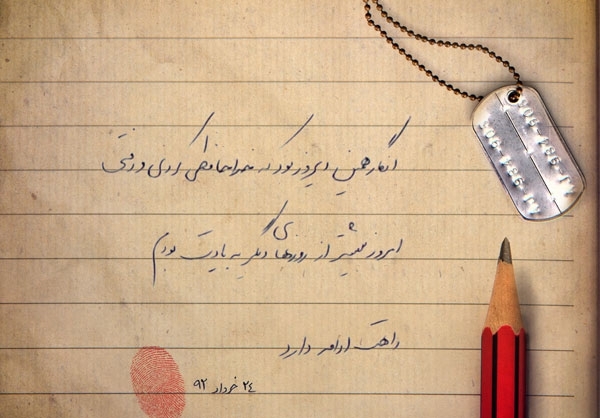 انگار همین دیروز بود که خداحافظی کردی و رفتی
امروز بیشتر از روزهای دیگر به یادت بودم
راهت ادامه دارد
۲۴ خرداد ۹۲